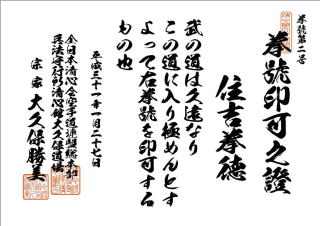 拳號第二号
拳號印可之證
住吉拳徳
武の道は久遠なり
この道に入り極めんとす
よって右拳號を印可する
もの也
平成三十一年一月二十七日
全日本清心会空手道連盟総本部
兵法守行新清心館大久保道場
宗家 大久保勝美